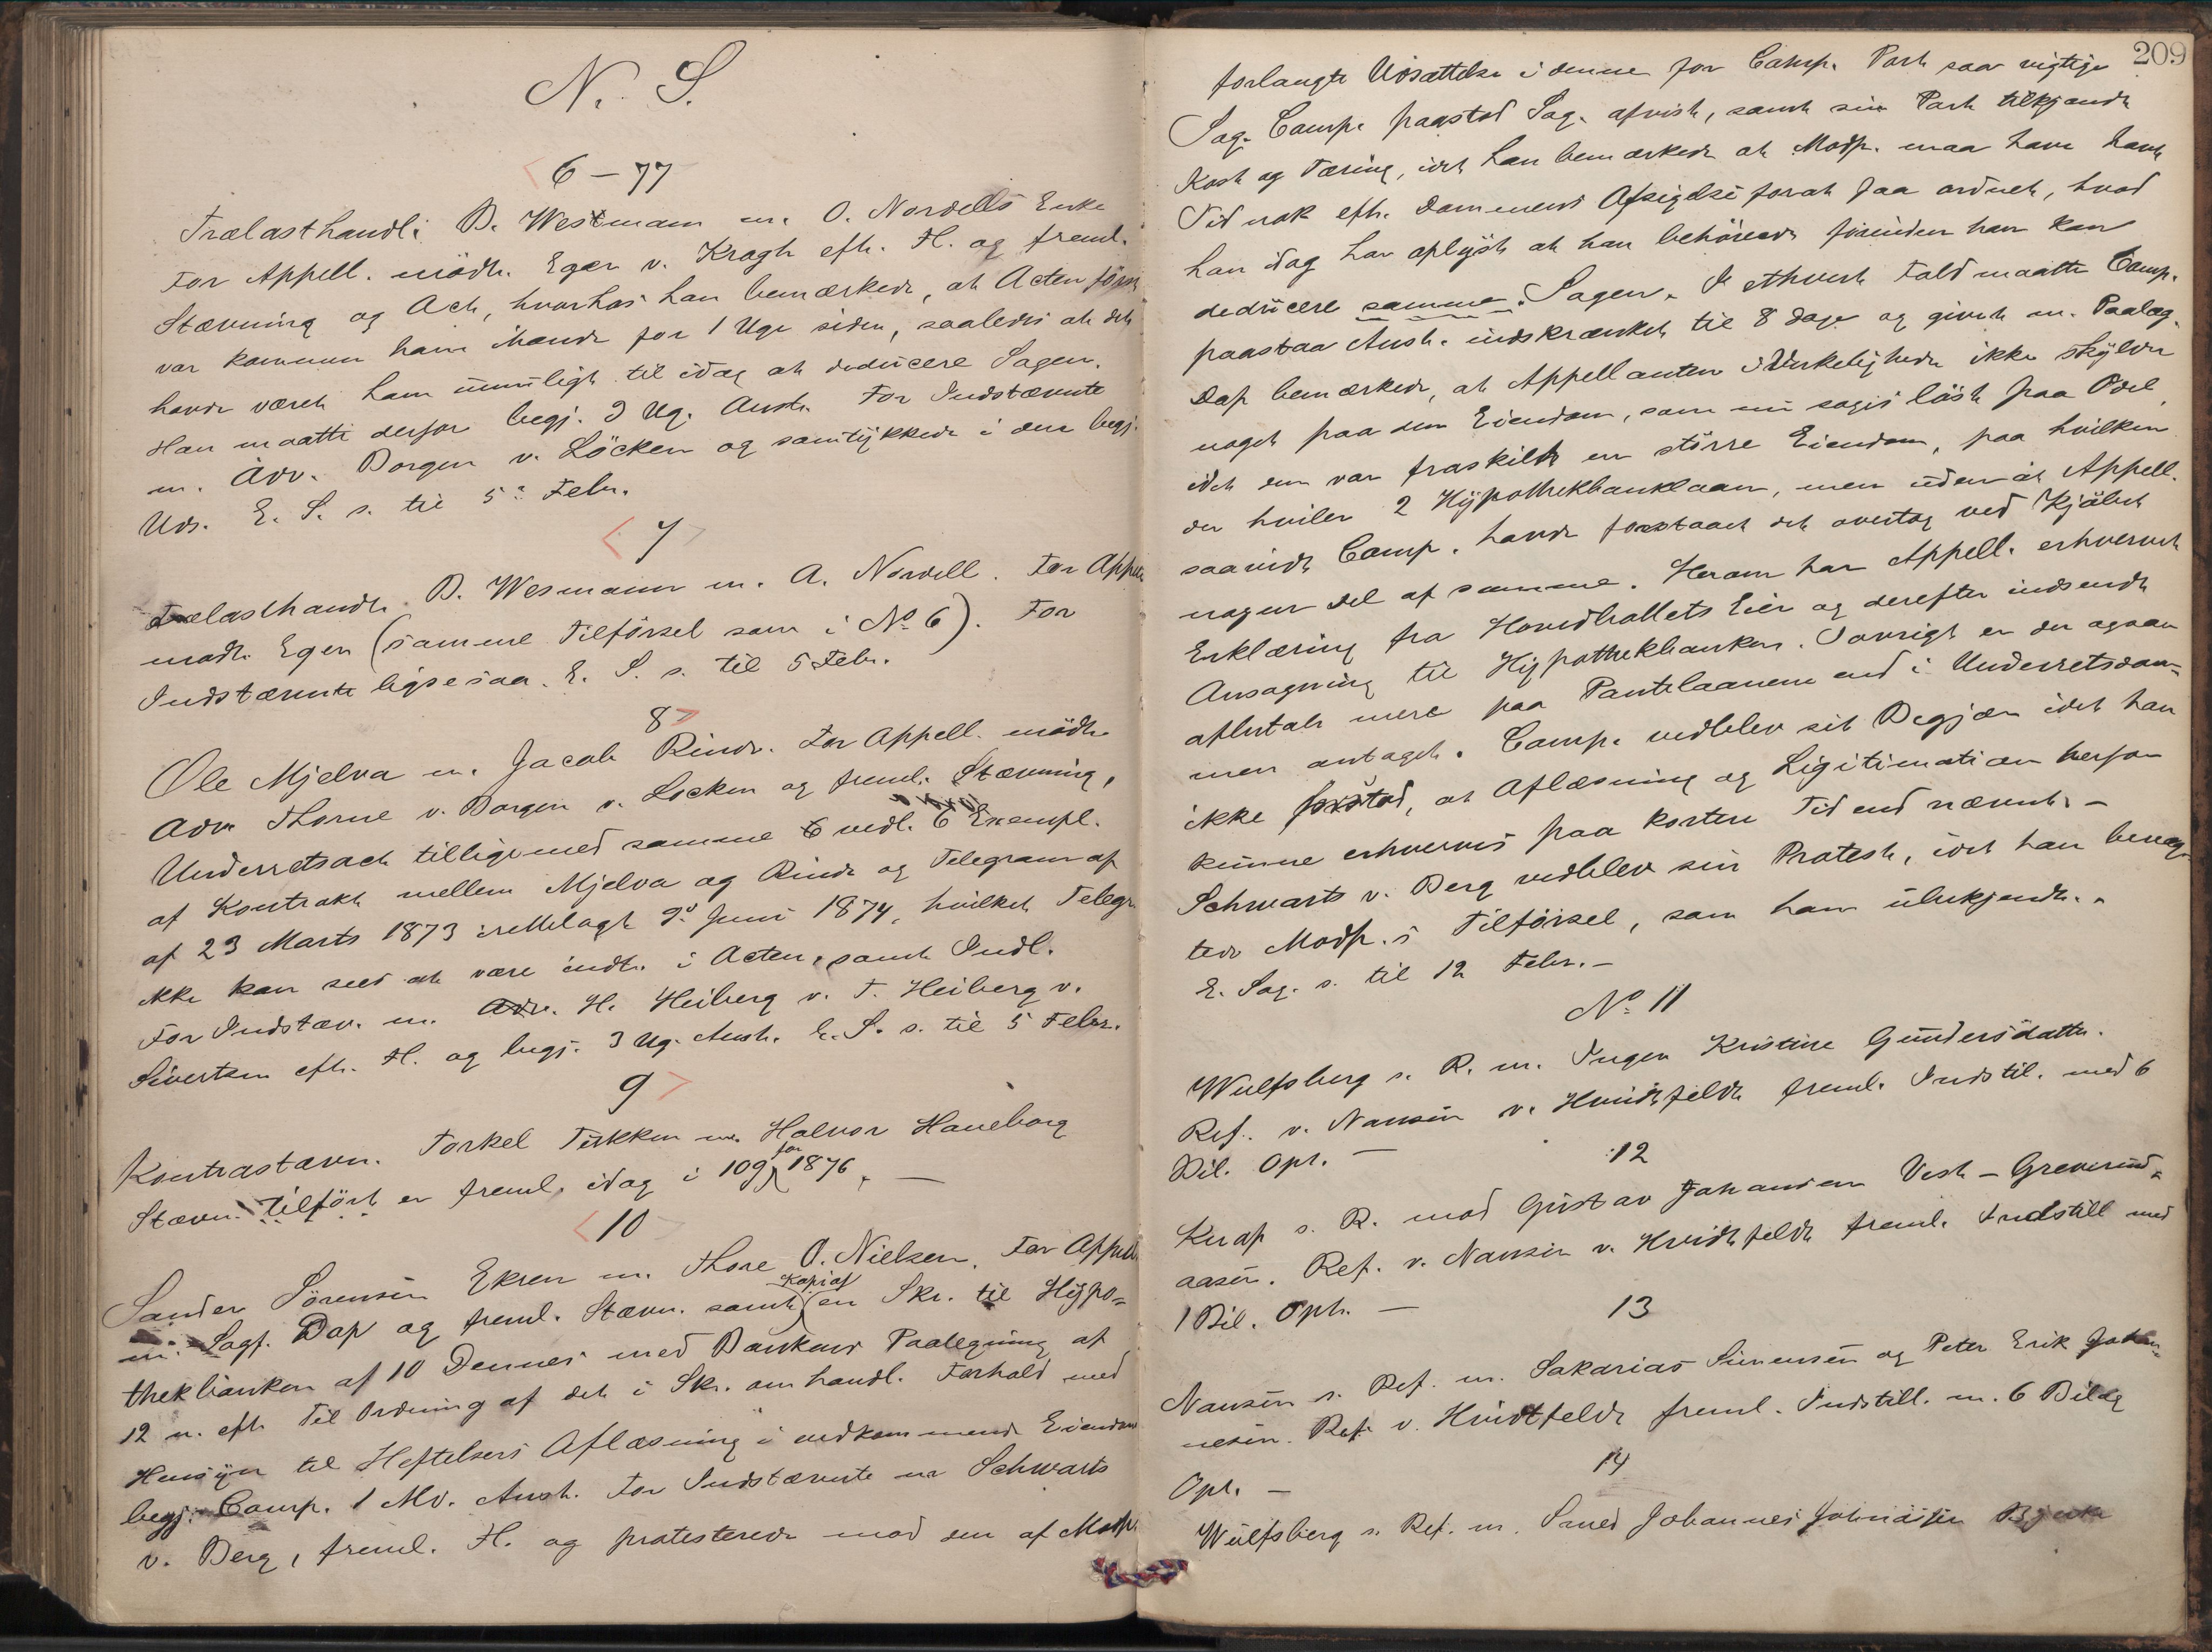 N. S.
6-77
Trælasthandl: B. Westmann m. O. Nordells Enke
For Appell. mödte Egen v. Kragh efter H. og freml.
Stævning og Act, hvorhos han bemærkede, at Acten först
var kommen ham ihænde for 1 Uge siden, saaledes at det
havde været ham umuligt til idag at deducere Sagen.
Han maatte derfor begj. 3 Ug. Anst. For Indstævnte
m. Adv. Borgen v. Löcken og samtykkede i den begj.
Uds. E. S. s. til 5. Febr.
7
Trælasthandl. B. Wesmann m. A. Nordell. For Appell.
mödte Egen (samme Tilförsel som i No 6). For
Indstævnte ligesaa. E. S. s. til 5 Febr.
8
Ole Mjelva m. Jacob Rinde. For Appell. mödte
Adv. Thorne v. Borgen v. Locken og freml. Stævning,
Underretsact tilligemed samme 6 vedl. 6 Exempl.
af Kontrakt mellem Mjelva og Rinde og Telegram af
af 23 Marts 1873 irettelagt 9d Juni 1874, hvilket Telegr.
ikke kan sees at være indt. i Acten, samt Indl.
For Indstæv. m. Adv. H. Heiberg v. T. Heiberg v.
Sivertsen eft. H. og begj. 3 Ug. Anst. E. S. s. til 5 Febr.
9
Kontrastævn. Torkel Tikken m. Halvor Haneborg
Stævn. tilfört er freml. idag i 109 for 1876. —
10
Sander Sörensen Ekren m. Thore O. Nielsen. For Appell.
m. Sagf. Dop og freml. Stævn. samt Kopi af en Skr. til Hypo=
thekbanken af 10 Dennes med Bankens Paategning af
12 n. eft. Til Ordning af det i Skr. omhandl. Forhold med
Hensyn til Heftelsers Aflæsning i vedkommende Eiendom
begj. Comp. 1 Md. Anst. For Indstævnte m Schwarts
v. Berg, freml. H. og protesterede mod den af Modp.
209
forlangte Udsættelse i denne for Comp. Part saa vigtige
Sag. Comp. paastod Sag. afvist, samt sin Part tilkjendt
Kost og Tæring, idet han bemærkede at Modp. maa have havt
Tid nok efter Dommens Afsigelse forat faa ordnet, hvad
han idag har oplyst at han behövede forinden han kan
deducere samme. Sagen. I ethvert Fald maatte Comp.
paastaa Anst. indskrænket til 8 Dage og givet m. Paalæg.
Dop bemærkede, at Appellanten i Virkeligheden ikke skylder
noget paa den Eiendom, som nu söges löst paa Odel,
idet den var fraskilt en större Eiendom, paa hvilken
der hviler 2 Hypothekbanklaan, men uden at Appell.
saavidt Comp. havde forstaaet det overtog ved Kjöbet
nogen Del af samme. Herom har Appell. erhvervet
Erklæring fra Hovedbøllets Eier og derefter indsendt
Ansögning til Hypothekbanken. Iövrigt er der ogsaa
afbetalt mere paa Pantelaanene end i Underretsdom=
men antaget. Comp. vedblev sit Begjær idet han
ikke forstod, at Aflæsning og Legitimation herfor
kunne erhverves paa kortere Tid end nævnt. —
Schwarts v. Berg vedblev sin Protest, idet han benæg=
tede Modp.s Tilförsel, som ham ubekjendt.
E. Sag. s. til 12 Febr. —
No 11
Wulfsberg s. R. m. Inger Kristine Gundersdatter.
Ref. v. Nansen v. Hvidtfeldt freml. Indstil. med 6
Bil. Opt. —
12
Knap s. R. mod Gustav Johansen Vest-Greverud=
aasen. Ref. v. Nansen v. Hvidtfeldt freml. Indstill med
1 Bil. Opt. —
13
Nansen s. Ref. m. Sakarias Simensen og Peter Erik Johan=
nesen. Ref. v. Hvidtfeldt freml. Indstill. m. 6 Bilag
Opt. —
14
Wulfsberg s. Ref. m. Smed Johannes